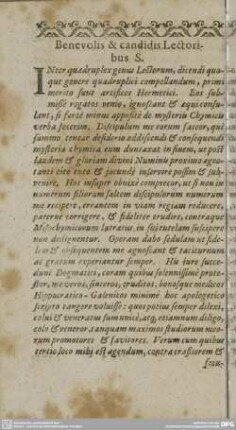 Benevolis & candidis Lectori-
bus S.
INter quadruplex genus Lectorum, dicendi quo-
que genere quadruplici compellandum, primi
merito sunt artifices Hermetici. Eos sub-
misse rogatos venio, ignoscant & æqui consu-
lant, si forte minus apposite de mysteriis Chymicis
verba fecerim. Discipulum me eorum facere, qui
summo tenear desiderio addiscendi & consequendi
mysteria chymica eum duntaxat in finem, ut post
laudem & gloriam divini Numinis proximo ægro-
tanti cito tuto & jucunde inservire possem & sub-
venire. Hoc insuper obnixe comprecor, ut si non in
numerum filiorum saltem discipulorum numerum
me recipere, errantem in viam regiam reducere,
paterne corrigere, & fideliter erudire, contraque
Misochymicorum latratus in sui tutelam suscipere
non dedignentur. Operam dabo sedulam ut fide-
lem & obsequentem me agnoscant & taciturnum
ac gratum experiantur semper. Hi jure succe-
dunt Dogmatici, coram quibus solennissime prote-
stor, me veros, sinceros, eruditos, bonosque medicos
Hippocratico-Galenitos minime hoc apologetico
scripto tangere voluisse: quos potius semper dilexi,
colui & veneratus sum unicè, atq; etiamnum diligo,
colo & veneror, tanquam maximos studiorum meo-
rum promotores & fautores. Verum cum quibus
tertio loco mihi est agendum, contra crassiorem &